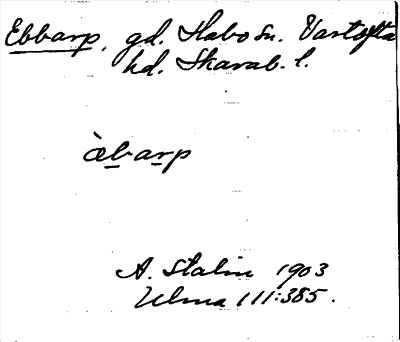 Ebbarp, gd. Habo sn. Vartofta
hd. Skarab. l.
àbarp
A. Stalin 1903
Ulma 111:385.